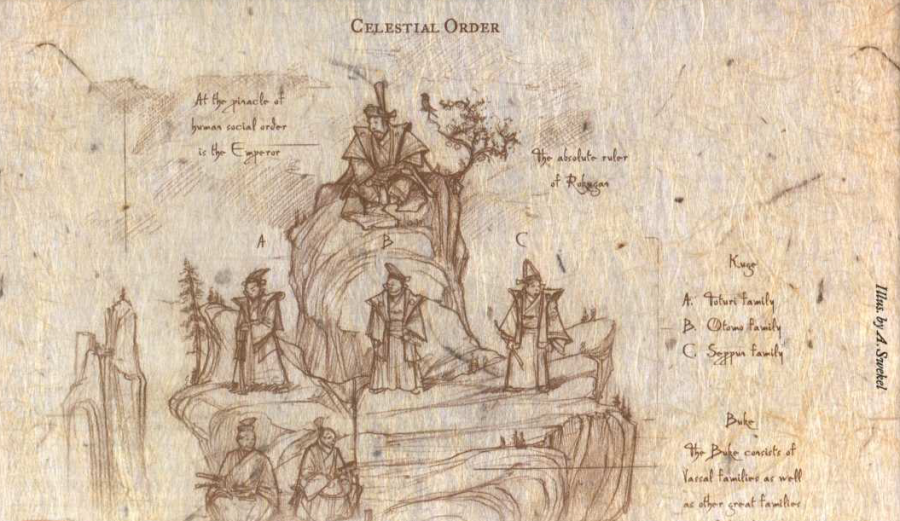 Celestial Order
At the pinacle of
human social order
is the Emperor
The absolute ruler
of Rokugan
A
B
C
Kuge
A. Toturi family
B. Otomo family
C. Seppun family
Buke
The Buke consists of
Vassal families as well
as other great families
Illus. by A. Swekel